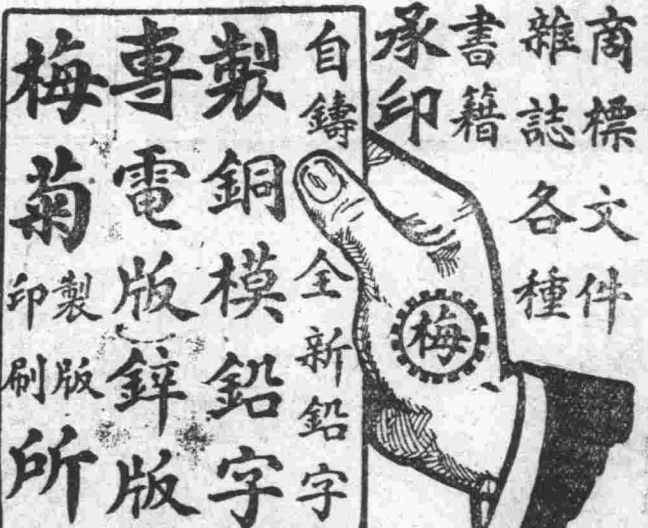 商標文件
雜誌各種
書籍
承印
梅
自鑄全新鉛字
製銅模鉛字
專電版鋅版
梅菊製版印刷所